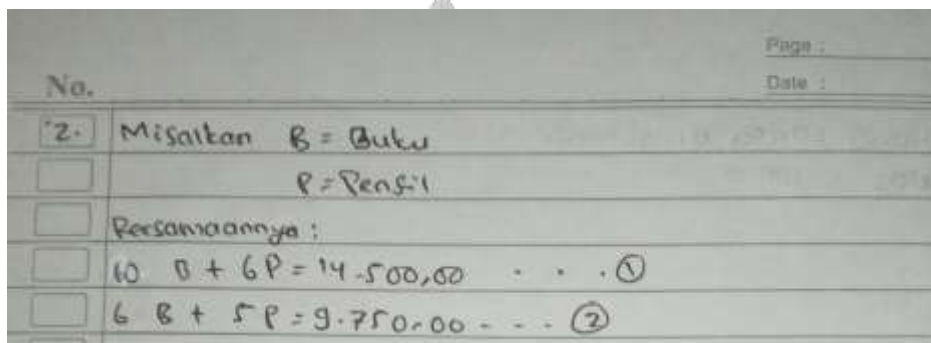 Page :
No.
Date :
2. Misalkan B = Buku
P = Pensil
Persamaannya :
10 B + 6P = 14.500,00 . . . ①
6 B + 5P = 9.750,00 - - - ②